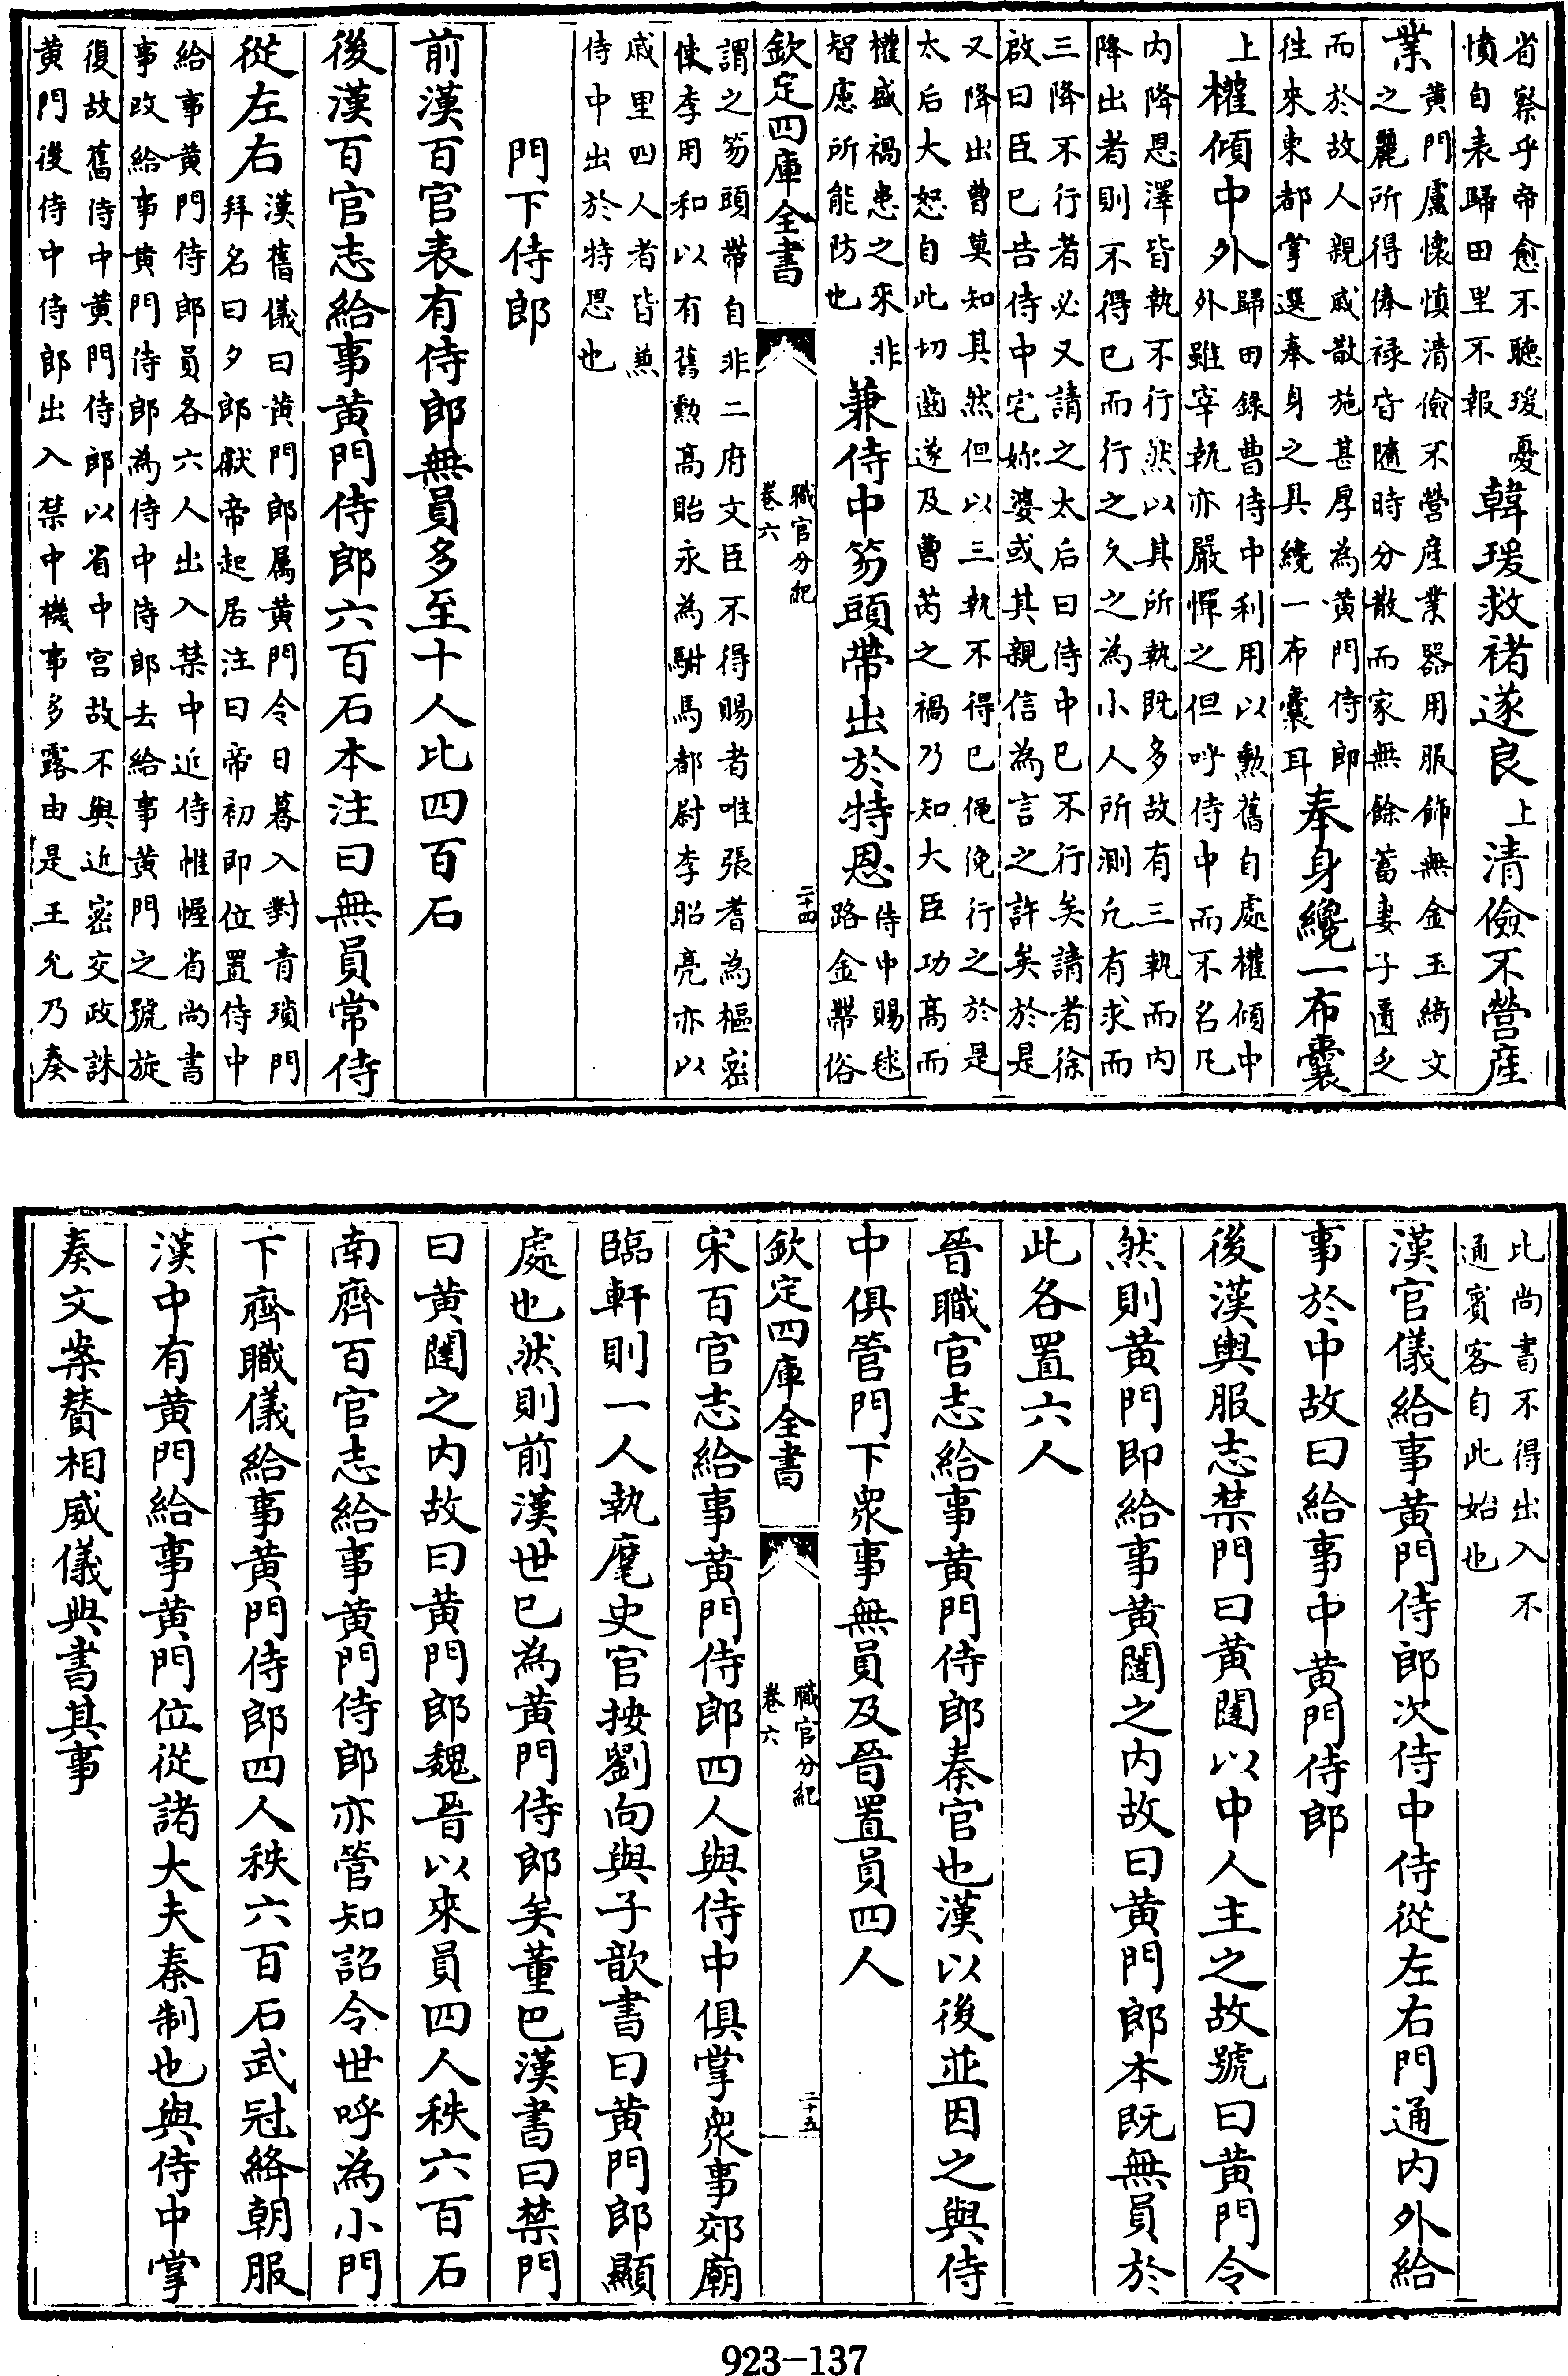 省察乎帝愈不聽瑗憂
憤自表歸田里不報
韓瑗救褚遂良
上
清儉不營產
業
黃門盧懷慎清儉不營產業器用服飾無金玉綺文
之麗所得俸祿皆隨時分散而家無餘蓄妻子匱乏
而於故人親戚散施甚厚為黃門侍郎
往來東都掌選奉身之具纔一布囊耳
奉身纔一布囊
上
權傾中外
歸田錄曹侍中利用以勲舊自處權傾中
外雖宰執亦嚴憚之但呼侍中而不名凡
內降恩澤皆執不行然以其所執既多故有三執而內
降出者則不得已而行之久之為小人所測凡有求而
三降不行者必又請之太后曰侍中已不行矣請者徐
啟曰臣已告侍中宅妳婆或其親信為言之許矣於是
又降出曹莫知其然但以三執不得已僶俛行之於是
太后大怒自此切齒遂及曹芮之禍乃知大臣功高而
權盛禍患之來非
智慮所能防也
兼侍中笏頭帶出於特恩
侍中賜毬
路金帶俗
欽定四庫全書
職官分紀
卷六
二十四
謂之笏頭帶自非二府文臣不得賜者唯張耆為樞密
使李用和以有舊勲高貽永為駙馬都尉李昭亮亦以
戚里四人者皆兼
侍中出於特恩也
門下侍郎
前漢百官表有侍郎無員多至十人比四百石
後漢百官志給事黃門侍郎六百石本注曰無員常侍
從左右
漢舊儀曰黃門郎屬黃門令日暮入對青瑣門
拜名曰夕郎獻帝起居注曰帝初即位置侍中
給事黃門侍郎員各六人出入禁中近侍帷幄省尚書
事改給事黃門侍郎為侍中侍郎去給事黃門之號旋
復故舊侍中黃門侍郎以省中宮故不與近密交政誅
黃門後侍中侍郎出入禁中機事多露由是王允乃奏
此尚書不得出入不
通賓客自此始也
漢官儀給事黃門侍郎次侍中侍從左右門通內外給
事於中故曰給事中黃門侍郎
後漢輿服志禁門曰黃闥以中人主之故號曰黃門令
然則黃門即給事黃闥之內故曰黃門郎本既無員於
此各置六人
晉職官志給事黃門侍郎秦官也漢以後並因之與侍
中俱管門下衆事無員及晉置員四人
欽定四庫全書
職官分紀
卷六
二十五
宋百官志給事黃門侍郎四人與侍中俱掌衆事郊廟
臨軒則一人執麾史官按劉向與子歆書曰黃門郎顯
處也然則前漢世已為黃門侍郎矣董巴漢書曰禁門
曰黃闥之內故曰黃門郎魏晉以來員四人秩六百石
南齊百官志給事黃門侍郎亦管知詔令世呼為小門
下齊職儀給事黃門侍郎四人秩六百石武冠絳朝服
漢中有黃門給事黃門位從諸大夫秦制也與侍中掌
奏文案贊相威儀典書其事
923-137